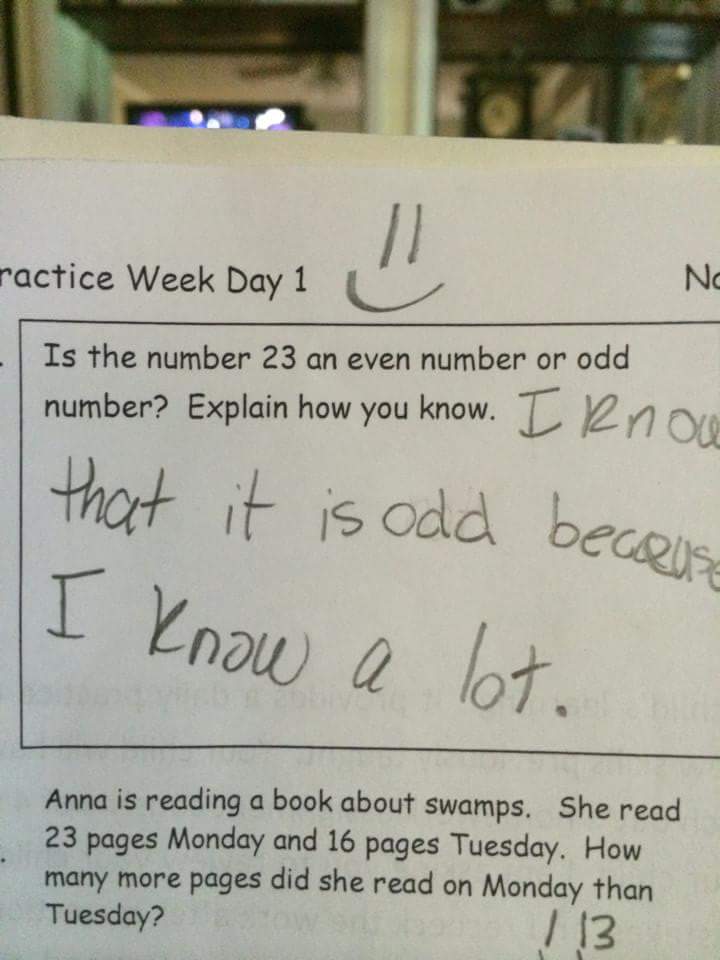 ractice Week Day 1
Is the number 23 an even number or odd
number? Explain how you know. I know
that it is odd because
I know a lot.
Anna is reading a book about swamps. She read
23 pages Monday and 16 pages Tuesday. How
many more pages did she read on Monday than
Tuesday?